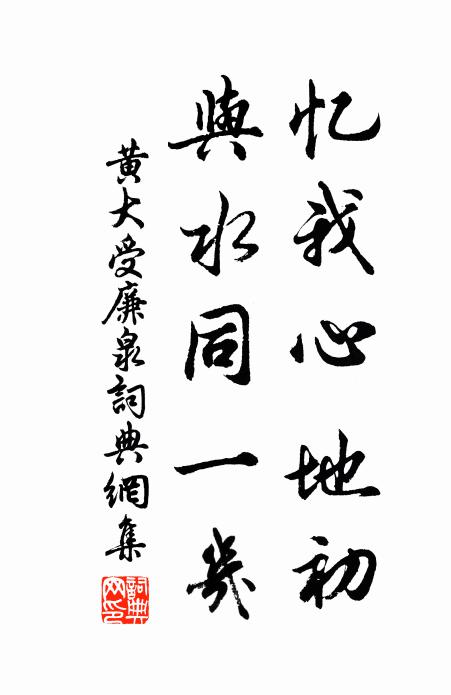 忆我心地初
與水同一幾
黄大受廉泉詞典網集
詞典網印